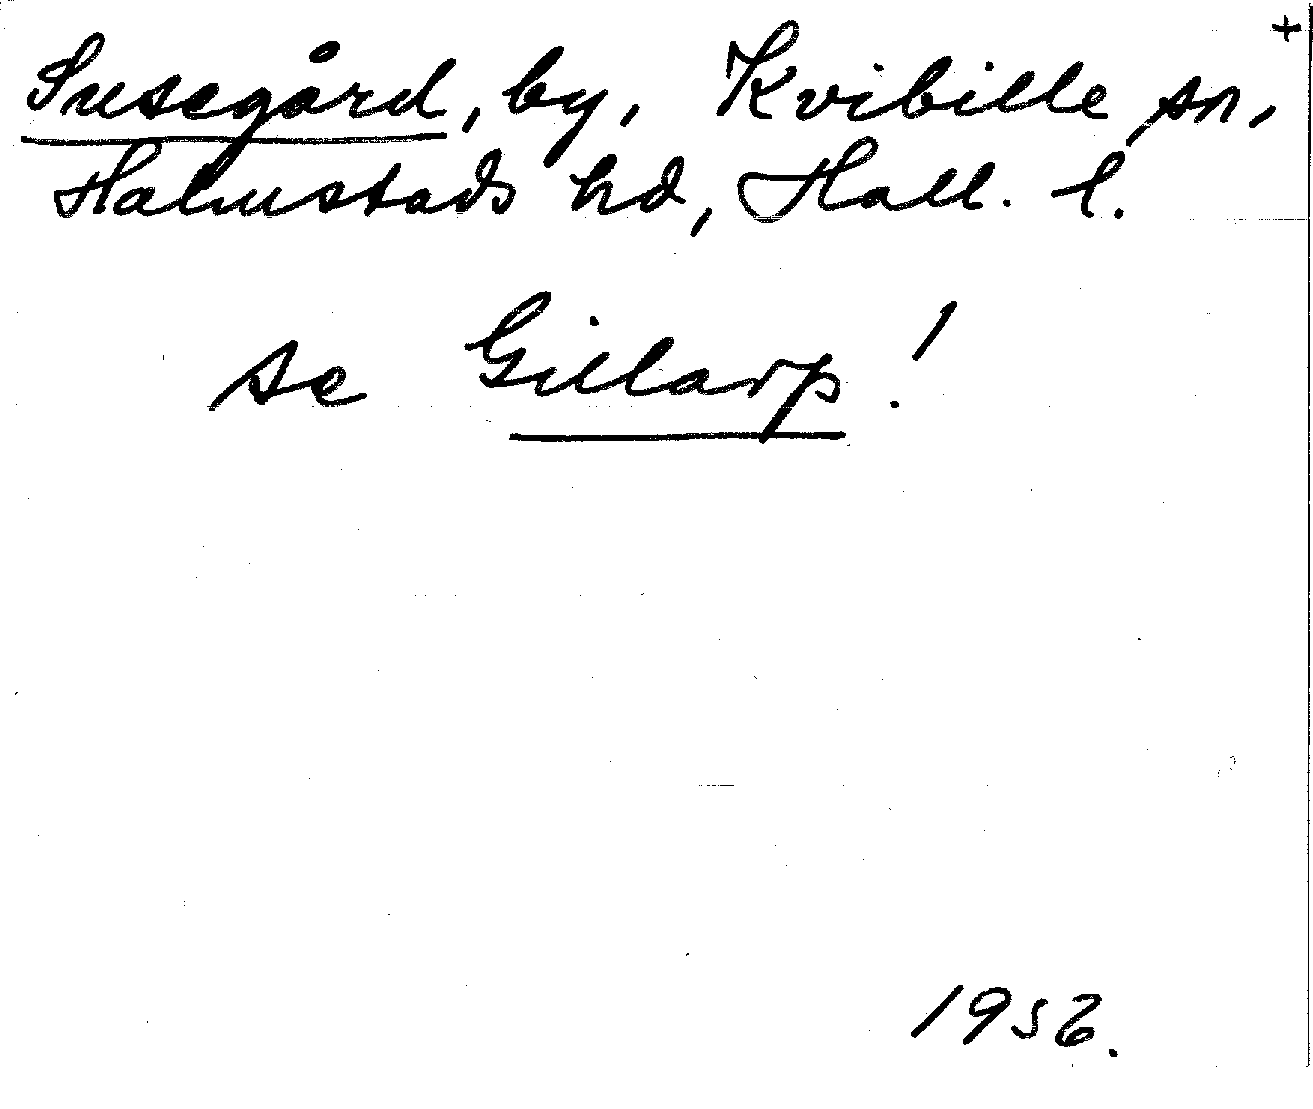 +
Susegård, by, Kvibille sn,
Halmstads hd, Hall. l.
se Gillarp!
1952.